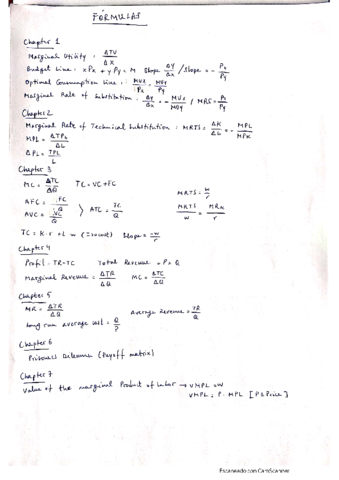 FORMULAS
Chapter 1
Marginal Utility : ΔTU/ΔX
Budget Line : x Px + y Py = M Slope ΔY/ΔX / Slope = - Px/Py
Optimal Consumption Line : MUx/Px = MUy/Py
Marginal Rate of Substitution : ΔY/ΔX = - MUx/MUy / MRS = Px/Py
Chapter 2
Marginal Rate of Technical Substitution : MRTS = ΔK/ΔL = - MPL/MPK
MPL = ΔTPL/ΔL
APL = TPL/L
Chapter 3
MC = ΔTC/ΔQ TC = VC + FC MRTS = w/r
AFC = FC/Q
AVC = VC/Q > ATC = TC/Q MRTS/w = MRK/r
TC = K·r + L·w (Isocost) Slope = -w/r
Chapter 4
Profit = TR-TC Total Revenue = P × Q
Marginal Revenue = ΔTR/ΔQ MC = ΔTC/ΔQ
Chapter 5
MR = ΔTR/ΔQ Average Revenue = TR/Q
Long run average cost = Q/P
Chapter 6
Prisoners Dilemma (Payoff matrix)
Chapter 7
Value of the marginal Product of Labor → VMPL = W
VMPL = P · MPL [P = Price]
Escaneado con CamScanner